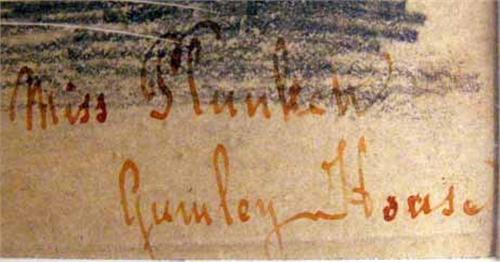 Miss Plunkett
Gumley House